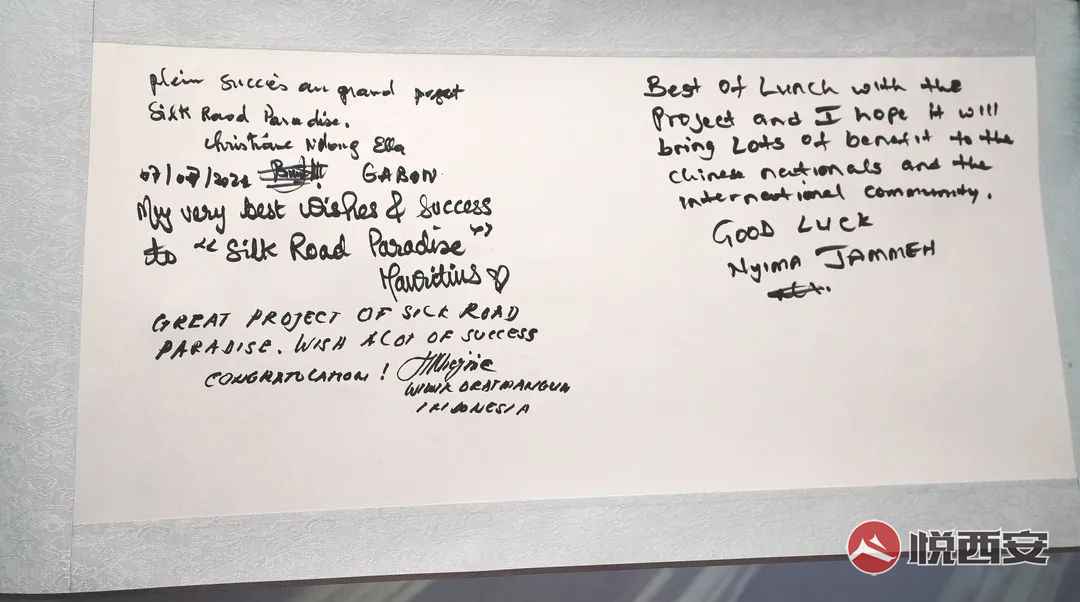 plein succès au grand projet
Silk Road Paradise.
Christiane Ndong Ella
07/07/2021 GABON
My very best wishes & Success
to “Silk Road Paradise”
Mauritius
GREAT PROJECT OF SILK ROAD
PARADISE. WISH A LOT OF SUCCESS
CONGRATULATION!
WIWIK ORATMANGUN
INDONESIA
Best of Lunch with the
Project and I hope it will
bring Lots of benefit to the
Chinese nationals and the
international community.
GOOD LUCK
NYIMA JAMMEH
悦西安